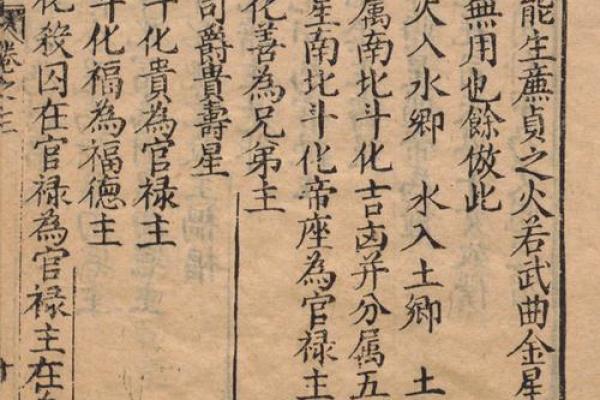 能生廉貞之火若武曲金星
無用也餘倣此
火入水鄉 水入土鄉 土
属南北斗化吉凶并分属五
星南北斗化帝座為官禄主
化善為兄弟主
司爵貴壽星
斗化貴為官禄主
斗化福為福德主
化殺囚在官禄為官禄主在
卷之二